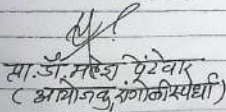 प्रा. डॉ. महेश पेंटेवार
( आयोजक, रांगोळी स्पर्धा )